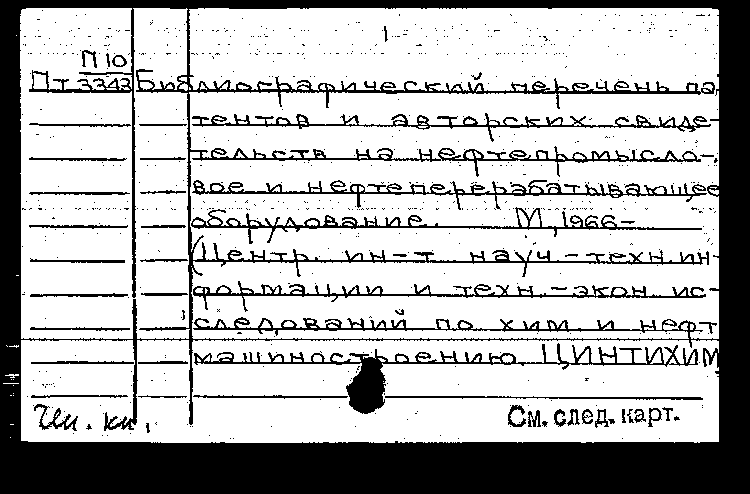 1
П10
Пт 3343 Библиографический перечень па-
тентов и авторских свиде-
тельств на нефтепромысло-
вое и нефтеперерабатывающее
оборудование. М, 1966-
(Центр. ин-т науч.-техн. ин-
формации и техн.-экон. ис-
следований по хим. и нефт.
машиностроению. ЦИНТИХИМ
Чи. кн.
См. след. карт.